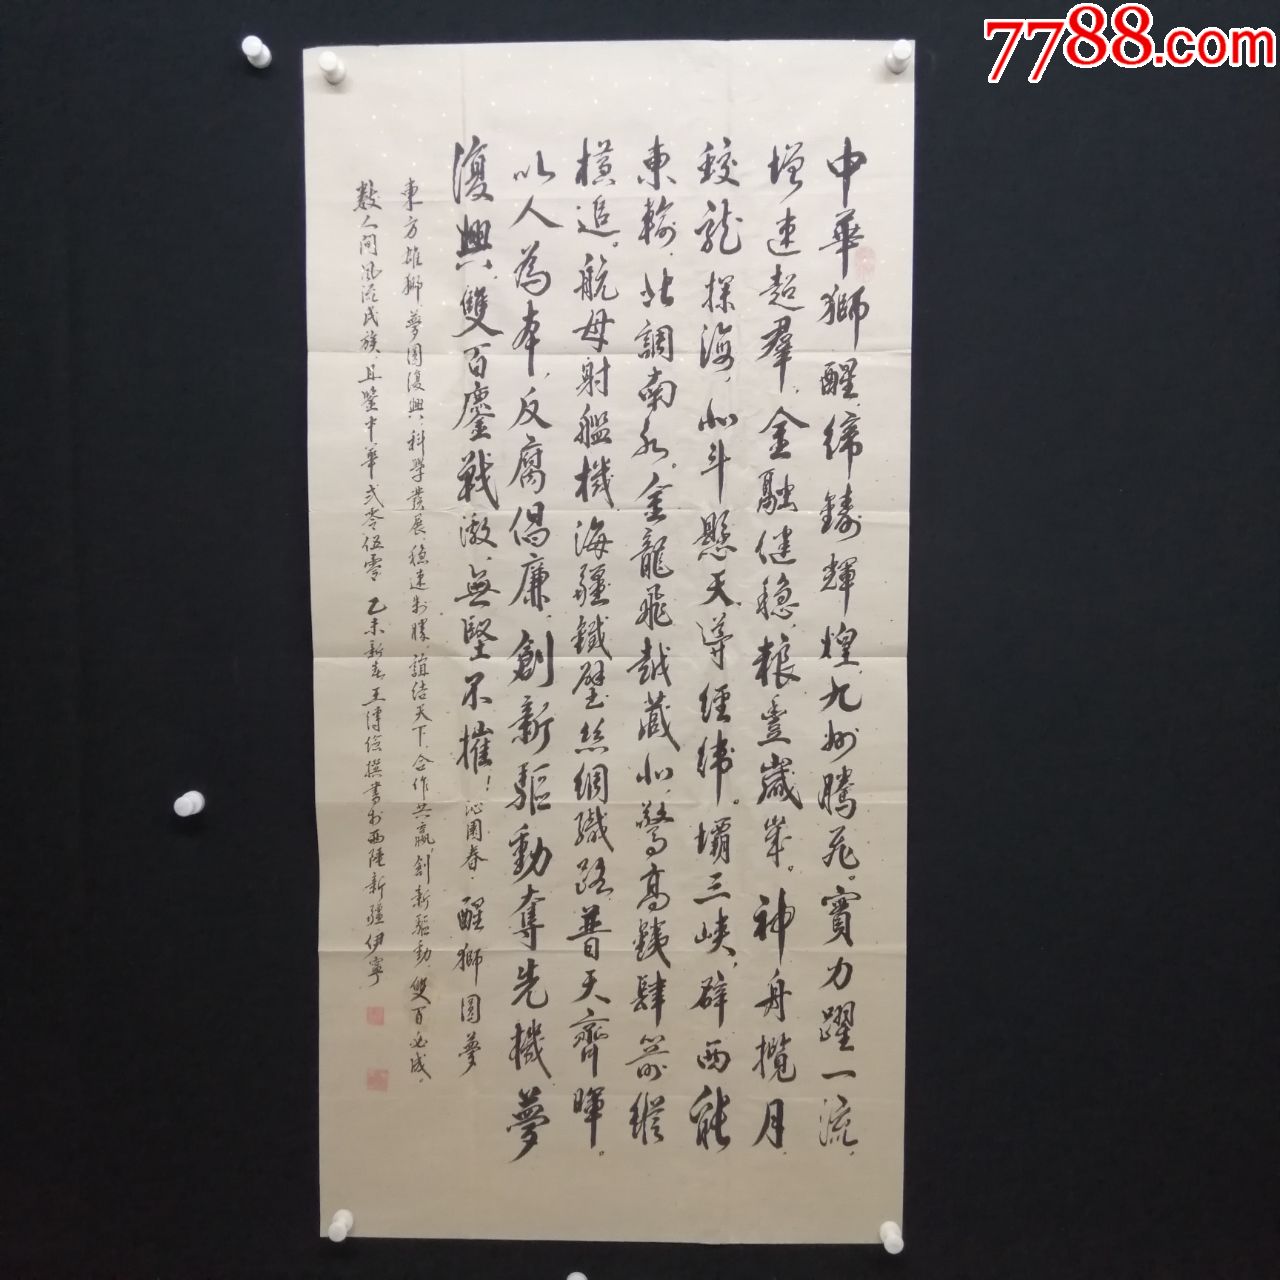 7788.com
中華獅醒,締鑄輝煌,九州騰飛。實力躍一流,
增速超羣,金融健穩,糧豐歲峯。神舟攬月,
蛟龍探海,北斗懸天導經緯。壩三峡,辟西能
東輸,北調南水。金龍飛越藏北,驚高鐵肆箭縱
横追。航母射艦機,海疆鐵壁,絲綢織路,普天齊暉。
以人為本,反腐倡廉,創新驅動奪先機,夢
復興,雙百鏖戰激,無堅不摧!沁園春·醒獅圆夢
東方雄獅,夢圆復興,科學發展,稳速制勝,誼结天下,合作共贏,創新驅動,雙百必成。
數人間风流民族,且鑒中華弍零伍零,乙未新春王傳俭撰書於西陲新疆伊寧